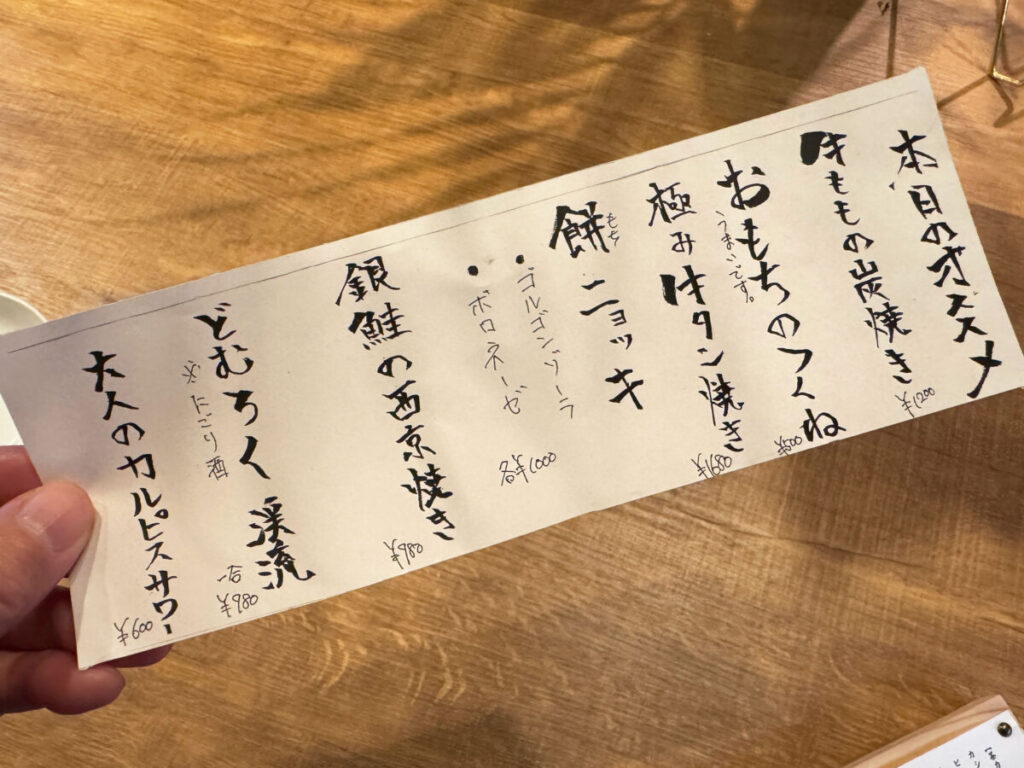 本日のオススメ
牛ももの炭焼き
¥1200
おもちのつくね
うまいです。
¥500
極み牛タン焼き
¥1680
餅ニョッキ
もち
・ゴルゴンゾーラ
・ボロネーゼ
各¥1000
銀鮭の西京焼き
¥980
どむろく 渓流
※にごり酒
一合
¥980
大人のカルピスサワー
¥600